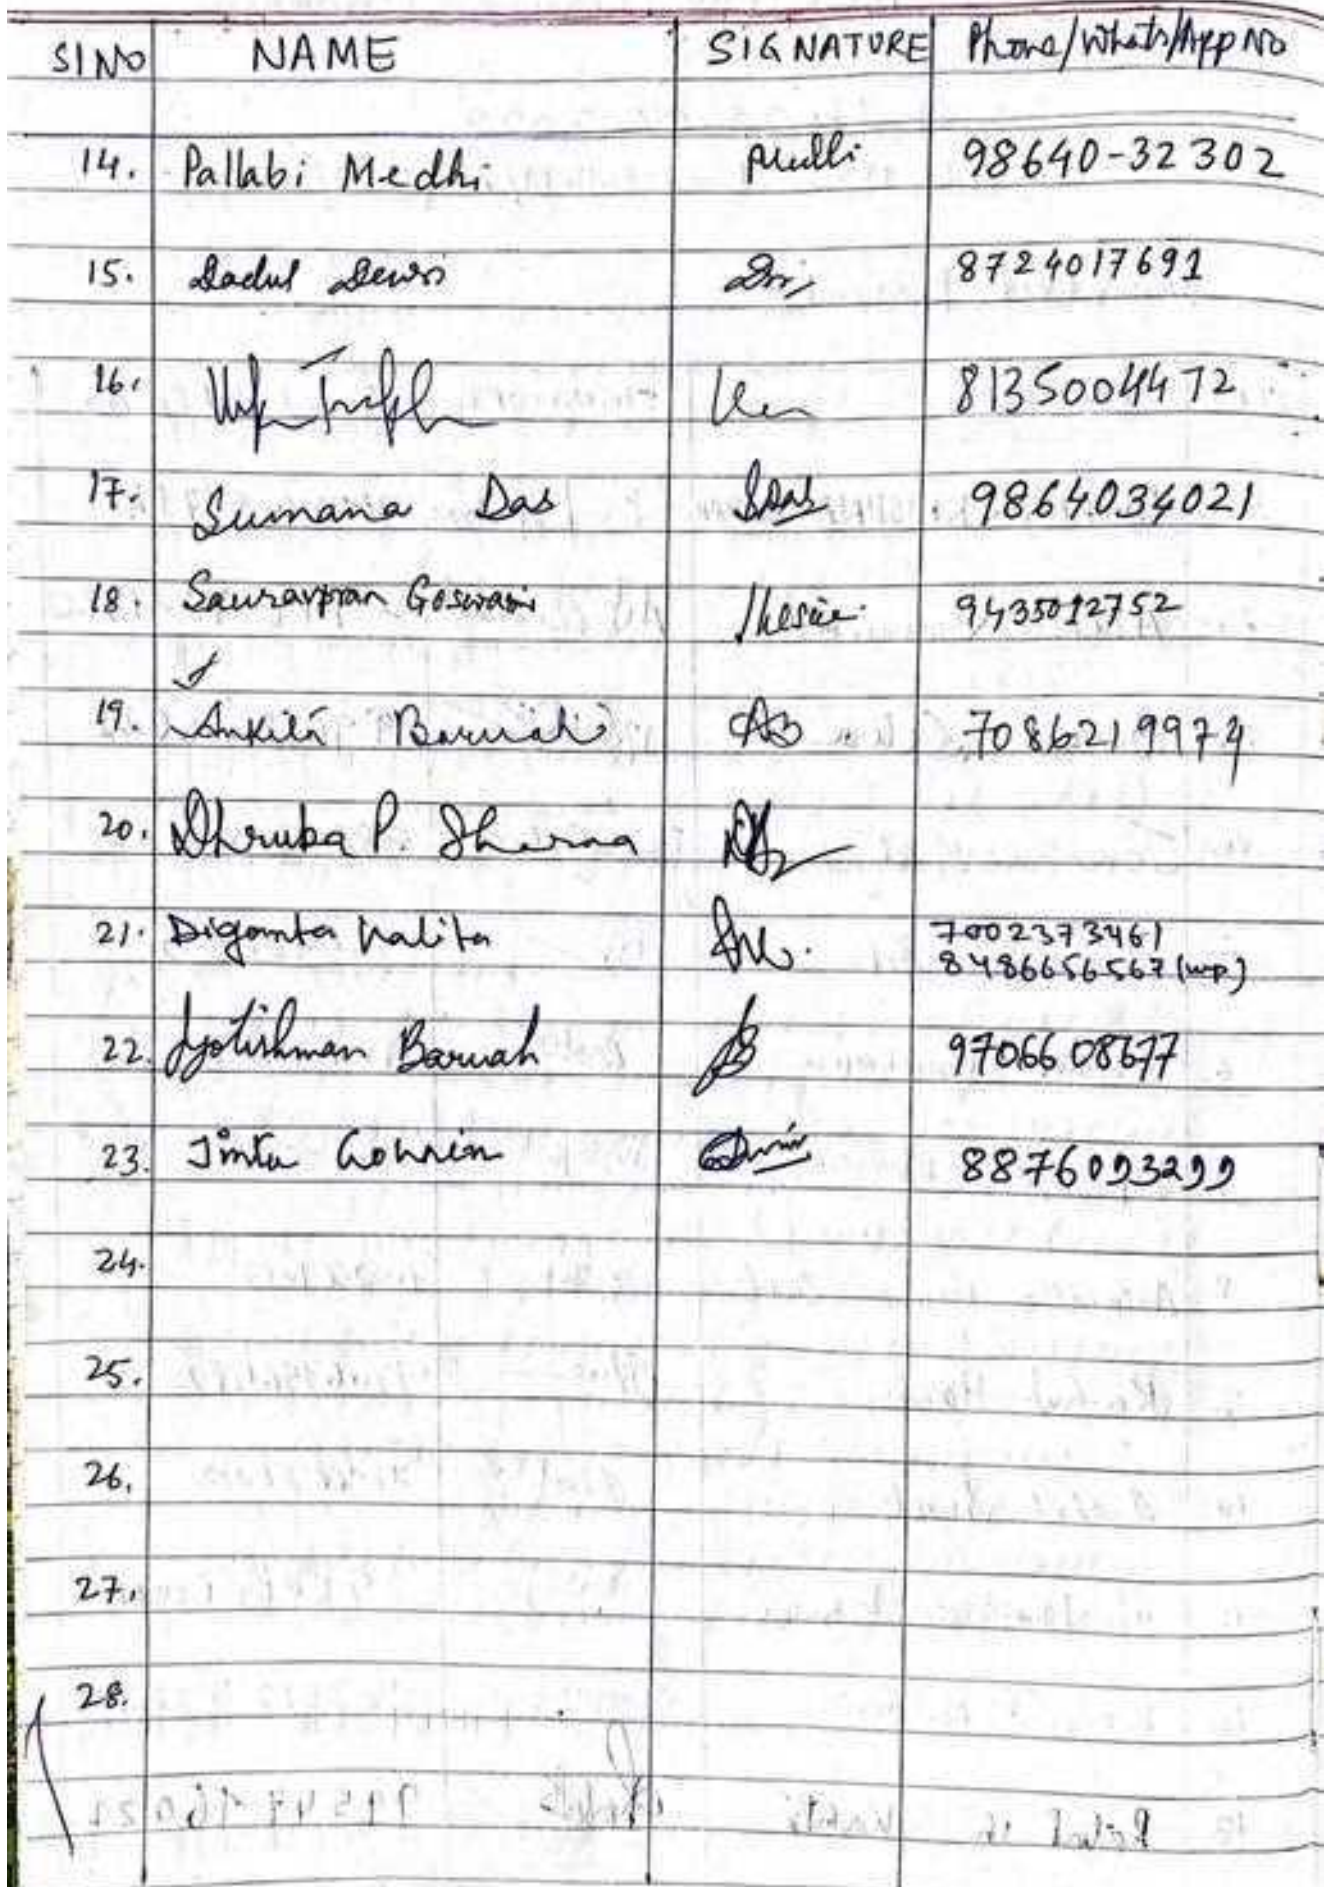 SI NO NAME SIGNATURE Phone/Whats/App No
14. Pallabi Medhi 98640-32302
15. Dadul 8724017691
16. 8135004472
17. Sumana Das SDas 9864034021
18. Sauravpran Goswami 9435012752
19. Ankita Baruah AB 7086219974
20. Dhruba P. Sharma
21. Diganta Kalita 7002373461
8486656567 (wp)
22. Jyotishman Baruah JB 9706608677
23. 8876093299
24.
25.
26.
27.
28.